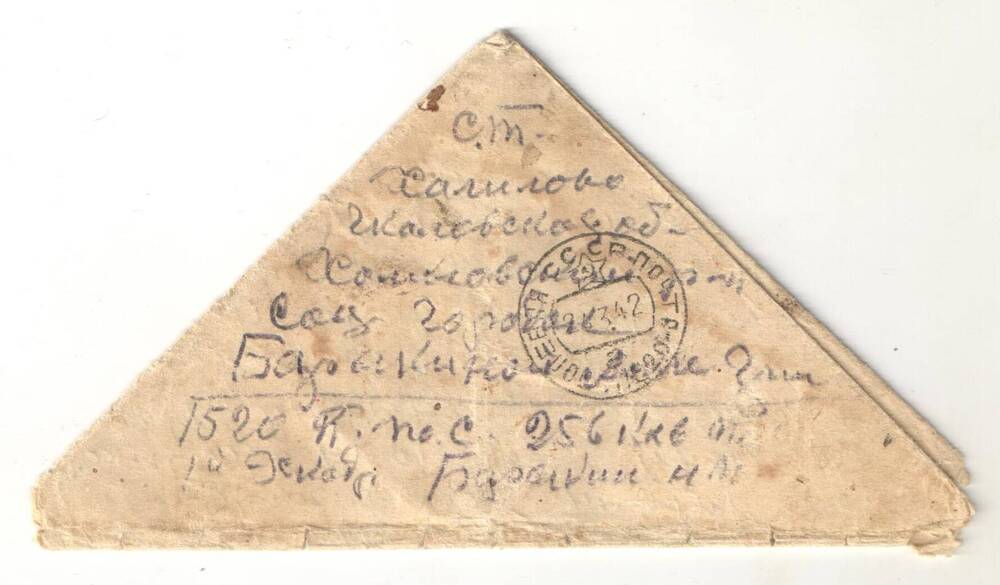 С.Т.
Халилово
Чкаловская об-
Халиловский р-н
Соц Городок
Барыкиной
1520 П.П.С. 256
1й Эскад. Барыкин Н М
СССР ПОЧТА
ПОЛЕВАЯ
42